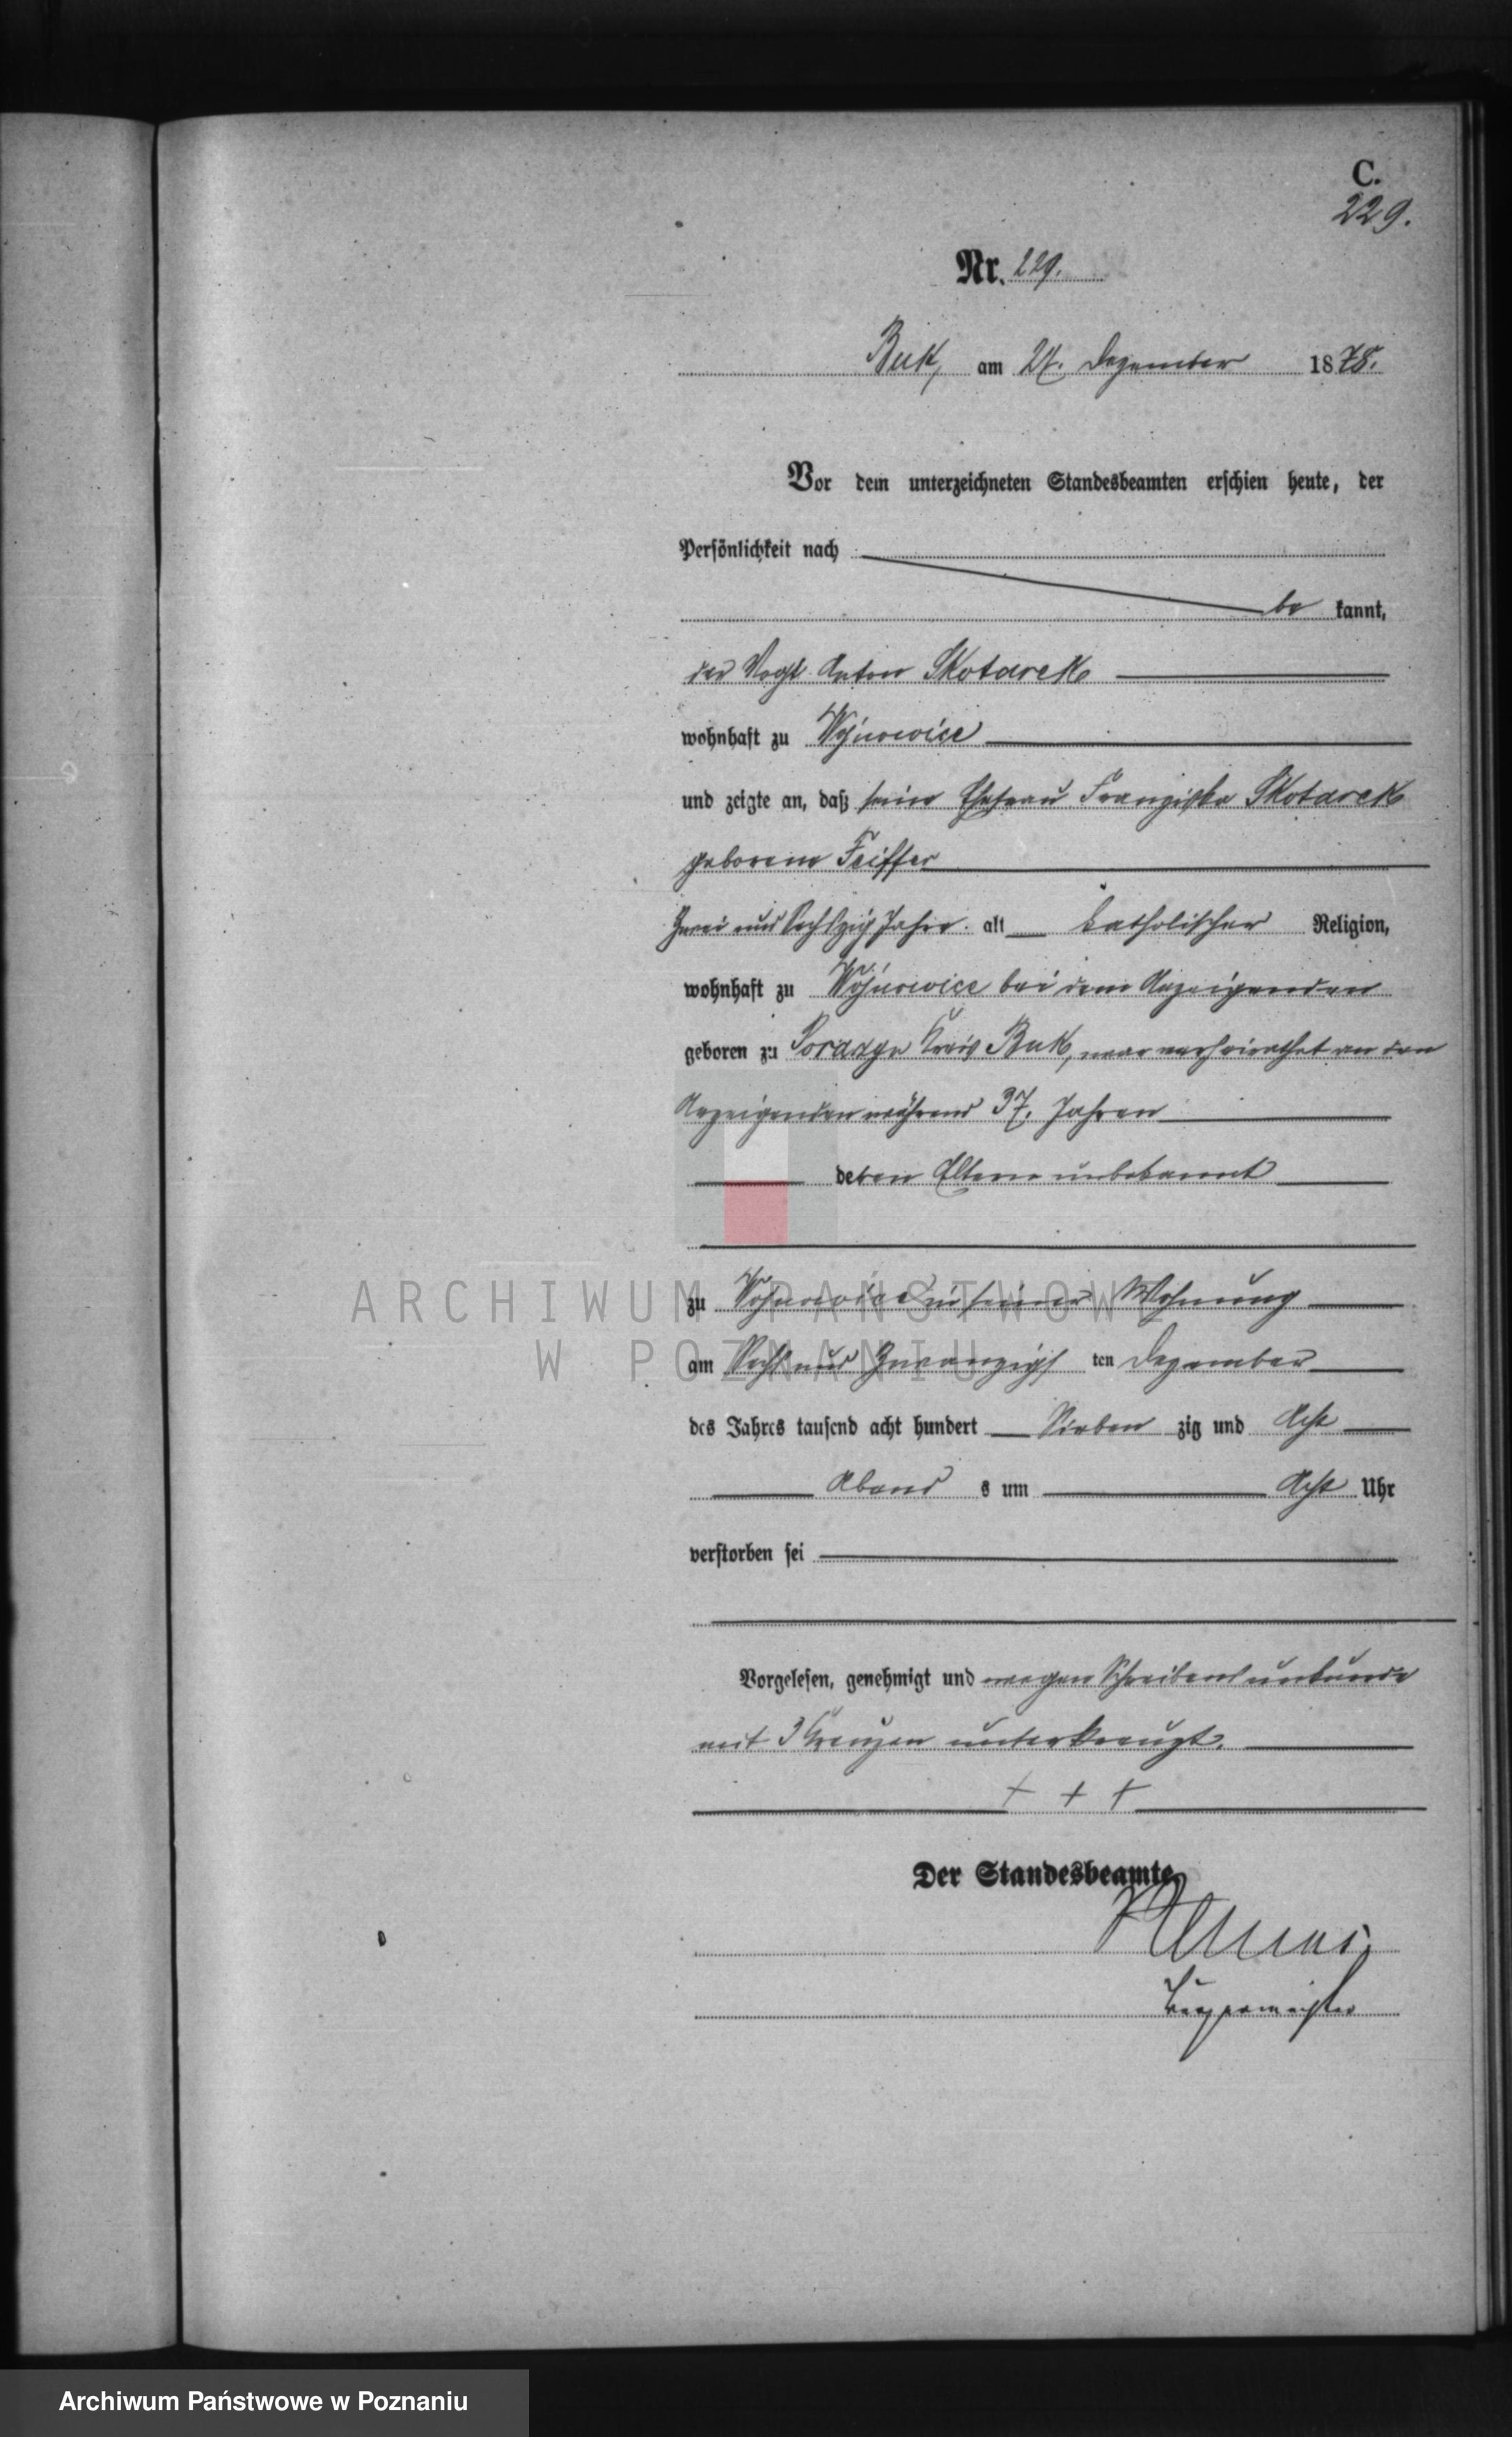 C.
229.
Nr. 229.
Buk, am 27. Dezember 1878.
Vor dem unterzeichneten Standesbeamten erschien heute, der
Persönlichkeit nach
be kannt,
der Vogt Anton Skotarek
wohnhaft zu Wojnowice
und zeigte an, daß seine Ehefrau Franziska Skotarek
geborene Feiffer
Zwei und Sechszig Jahre alt katholischer Religion,
wohnhaft zu Wojnowice bei dem Anzeigenden
geboren zu Kreis Buk, war verheirathet an den
Anzeigenden während 37. Jahren
deren Eltern unbekannt
zu Wojnowice in seiner Wohnung
am Sechs und Zwanzigs ten Dezember
des Jahres tausend acht hundert Sieben zig und Acht
Abend s um Acht Uhr
verstorben sei
Vorgelesen, genehmigt und wegen Schreibensunkunde
mit 3 Kreuzen unterkreuzt.
+ + +
Der Standesbeamte.
Bürgermeister
ARCHIWUM PAŃSTWOWE
W POZNANIU
Archiwum Państwowe w Poznaniu